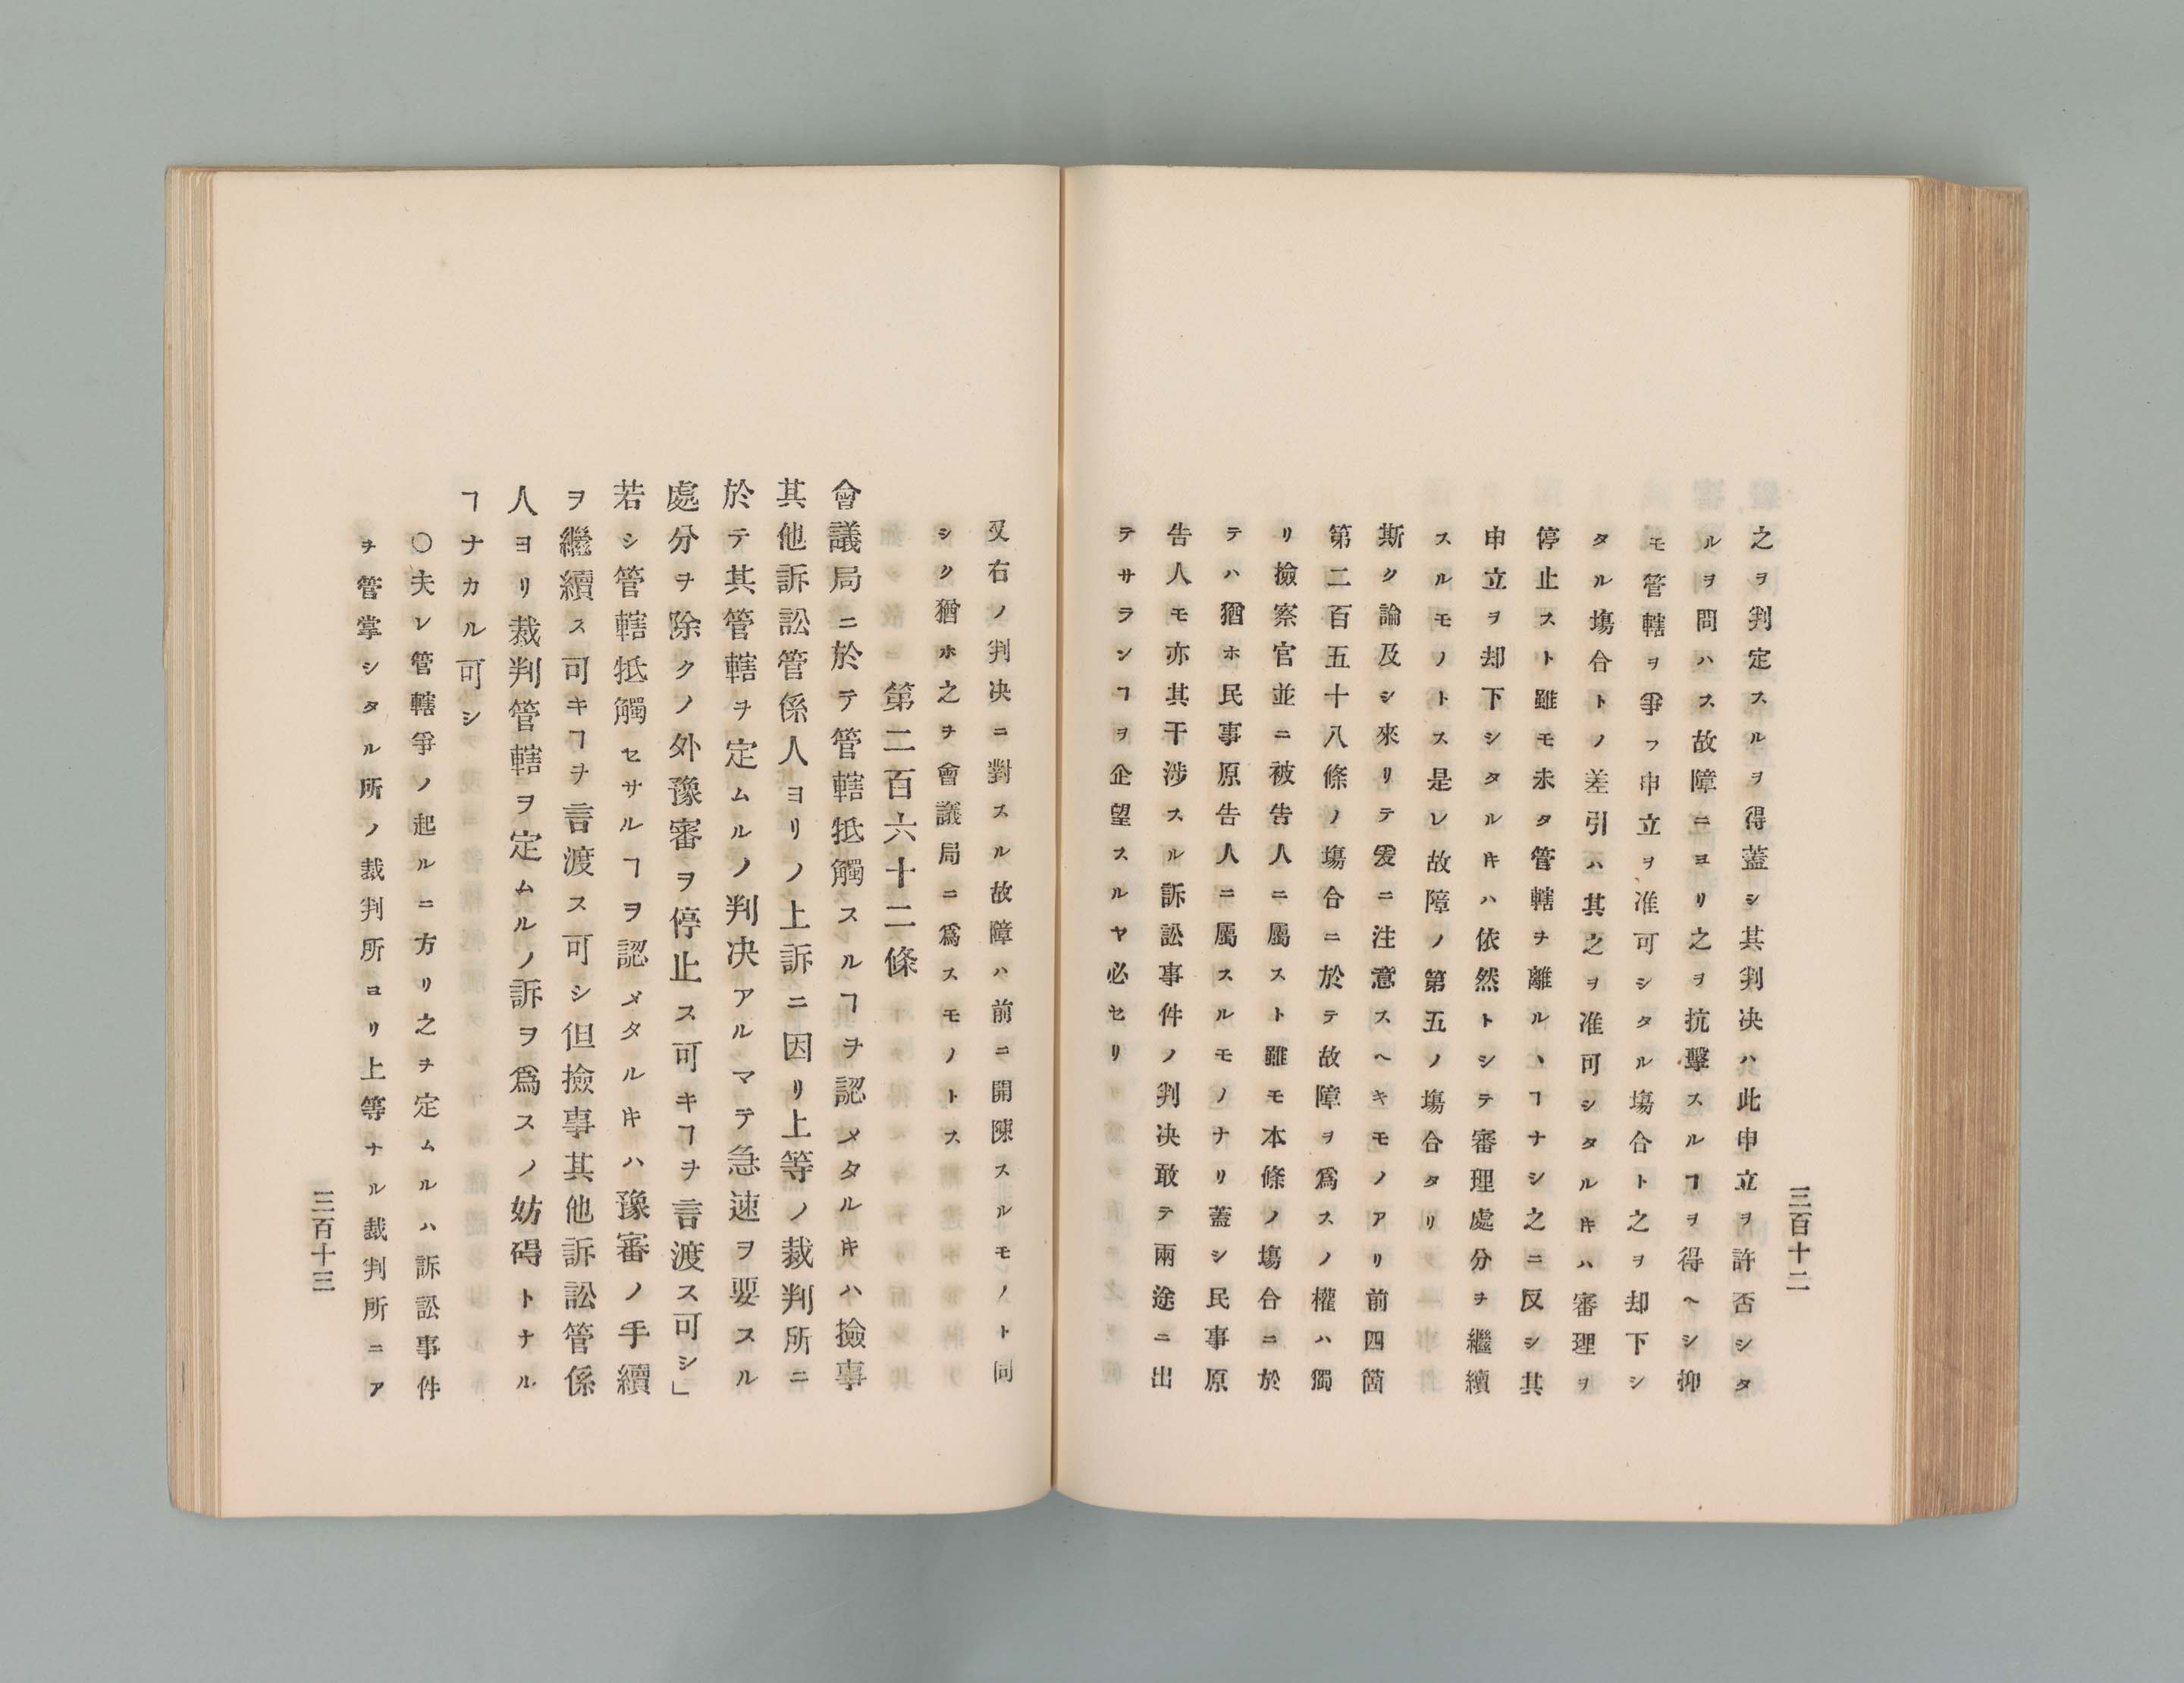 三百十二
之ヲ判定スルヲ得蓋シ其判决ハ此申立ヲ許否シタ
ルヲ問ハス故障ニヨリ之ヲ抗擊スルヿヲ得ヘシ抑
モ管轄ヲ爭フ申立ヲ准可シタル塲合ト之ヲ却下シ
タル塲合トノ差引ハ其之ヲ准可シタルキハ審理ヲ
停止スト雖モ未タ管轄ヲ離ルヽヿナシ之ニ反シ其
申立ヲ却下シタルキハ依然トシテ審理處分ヲ繼續
スルモノトス是レ故障ノ第五ノ塲合タリ
斯ク論及シ來リテ爰ニ注意スヘキモノアリ前四箇
第二百五十八條ノ塲合ニ於テ故障ヲ爲スノ權ハ獨
リ撿察官並ニ被告人ニ屬スト雖モ本條ノ塲合ニ於
テハ猶ホ民事原告人ニ屬スルモノナリ蓋シ民事原
告人モ亦其干渉スル訴訟事件ノ判决敢テ兩途ニ出
テサランヿヲ企望スルヤ必セリ
又右ノ判决ニ對スル故障ハ前ニ開陳スルモノト同
シク猶ホ之ヲ會議局ニ爲スモノトス
第二百六十二條
會議局ニ於テ管轄牴觸スルヿヲ認メタルキハ撿事
其他訴訟管係人ヨリノ上訴ニ因リ上等ノ裁判所ニ
於テ其管轄ヲ定ムルノ判决アルマテ急速ヲ要スル
處分ヲ除クノ外豫審ヲ停止ス可キヿヲ言渡ス可シ」
若シ管轄牴觸セサルヿヲ認メタルキハ豫審ノ手續
ヲ繼續ス可キヿヲ言渡ス可シ但撿事其他訴訟管係
人ヨリ裁判管轄ヲ定ムルノ訴ヲ爲スノ妨碍トナル
ヿナカル可シ
〇夫レ管轄爭ノ起ルニ方リ之ヲ定ムルハ訴訟事件
ヲ管掌シタル所ノ裁判所ヨリ上等ナル裁判所ニア
三百十三